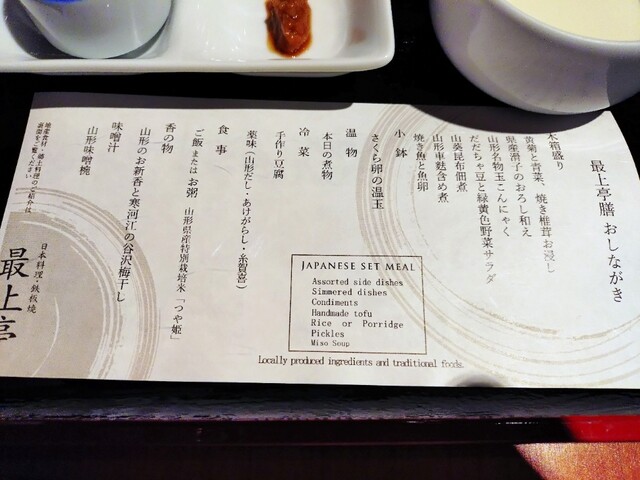 最上亭膳 おしながき
木箱盛り
黄菊と青菜、焼き椎茸お浸し
県産滑子のおろし和え
山形名物玉こんにゃく
だだちゃ豆と緑黄色野菜サラダ
山葵昆布佃煮
山形車麩含め煮
焼き魚と魚卵
小鉢
さくら卵の温玉
温物
本日の煮物
冷菜
手作り豆腐
薬味（山形だし・あけがらし・糸賀喜）
食事
ご飯またはお粥 山形県産特別栽培米「つや姫」
香の物
山形のお新香と寒河江の谷沢梅干し
味噌汁
山形味噌椀
地産食材・郷土料理のご紹介は
裏面をご覧ください。
日本料理・鉄板焼
最上亭
JAPANESE SET MEAL
Assorted side dishes
Simmered dishes
Condiments
Handmade tofu
Rice or Porridge
Pickles
Miso Soup
Locally produced ingredients and traditional foods.